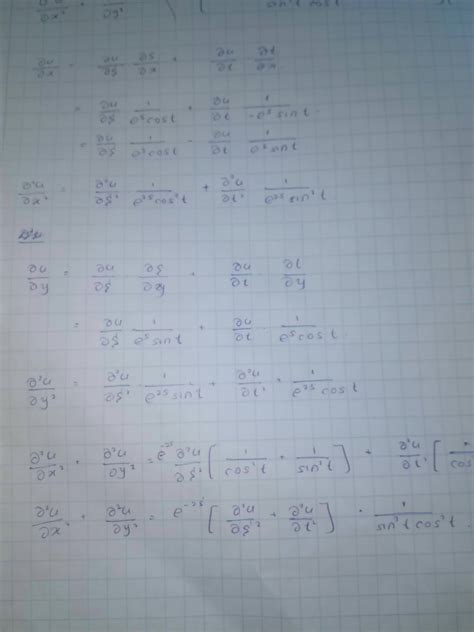 ∂x² ∂y² sin²t cos²t
∂u/∂x = ∂u/∂s ∂s/∂x + ∂u/∂t ∂t/∂x
= ∂u/∂s 1/(e^s cos t) + ∂u/∂t 1/(-e^s sin t)
= ∂u/∂s 1/(e^s cos t) - ∂u/∂t 1/(e^s sin t)
∂²u/∂x² = ∂²u/∂s² 1/(e^2s cos²t) + ∂²u/∂t² 1/(e^2s sin²t)
∂u/∂y = ∂u/∂s ∂s/∂y + ∂u/∂t ∂t/∂y
= ∂u/∂s 1/(e^s sin t) + ∂u/∂t · 1/(e^s cos t)
∂²u/∂y² = ∂²u/∂s² · 1/(e^2s sin t) + ∂²u/∂t² · 1/(e^2s cos t)
∂²u/∂x² + ∂²u/∂y² = e^-2s ∂²u/∂s² [1/cos²t + 1/sin²t] + ∂²u/∂t² [ /cos
∂²u/∂x² + ∂²u/∂y² = e^-2s [∂²u/∂s² + ∂²u/∂t²] · 1/(sin²t cos²t)